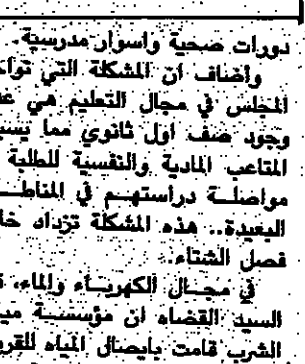 دورات صحية واسوار مدرسية.
وأضاف ان المشكلة التي
المجلس في مجال التعليم هي
وجود صف اول ثانوي مما
المتاعب المادية والنفسية للطلبة
مواصلة دراستهم في
البعيدة.. هذه المشكلة تزداد
فصل الشتاء.
في مجال الكهرباء والماء،
السيد القضاه ان مؤسسة
الشرب قامت بايصال المياه